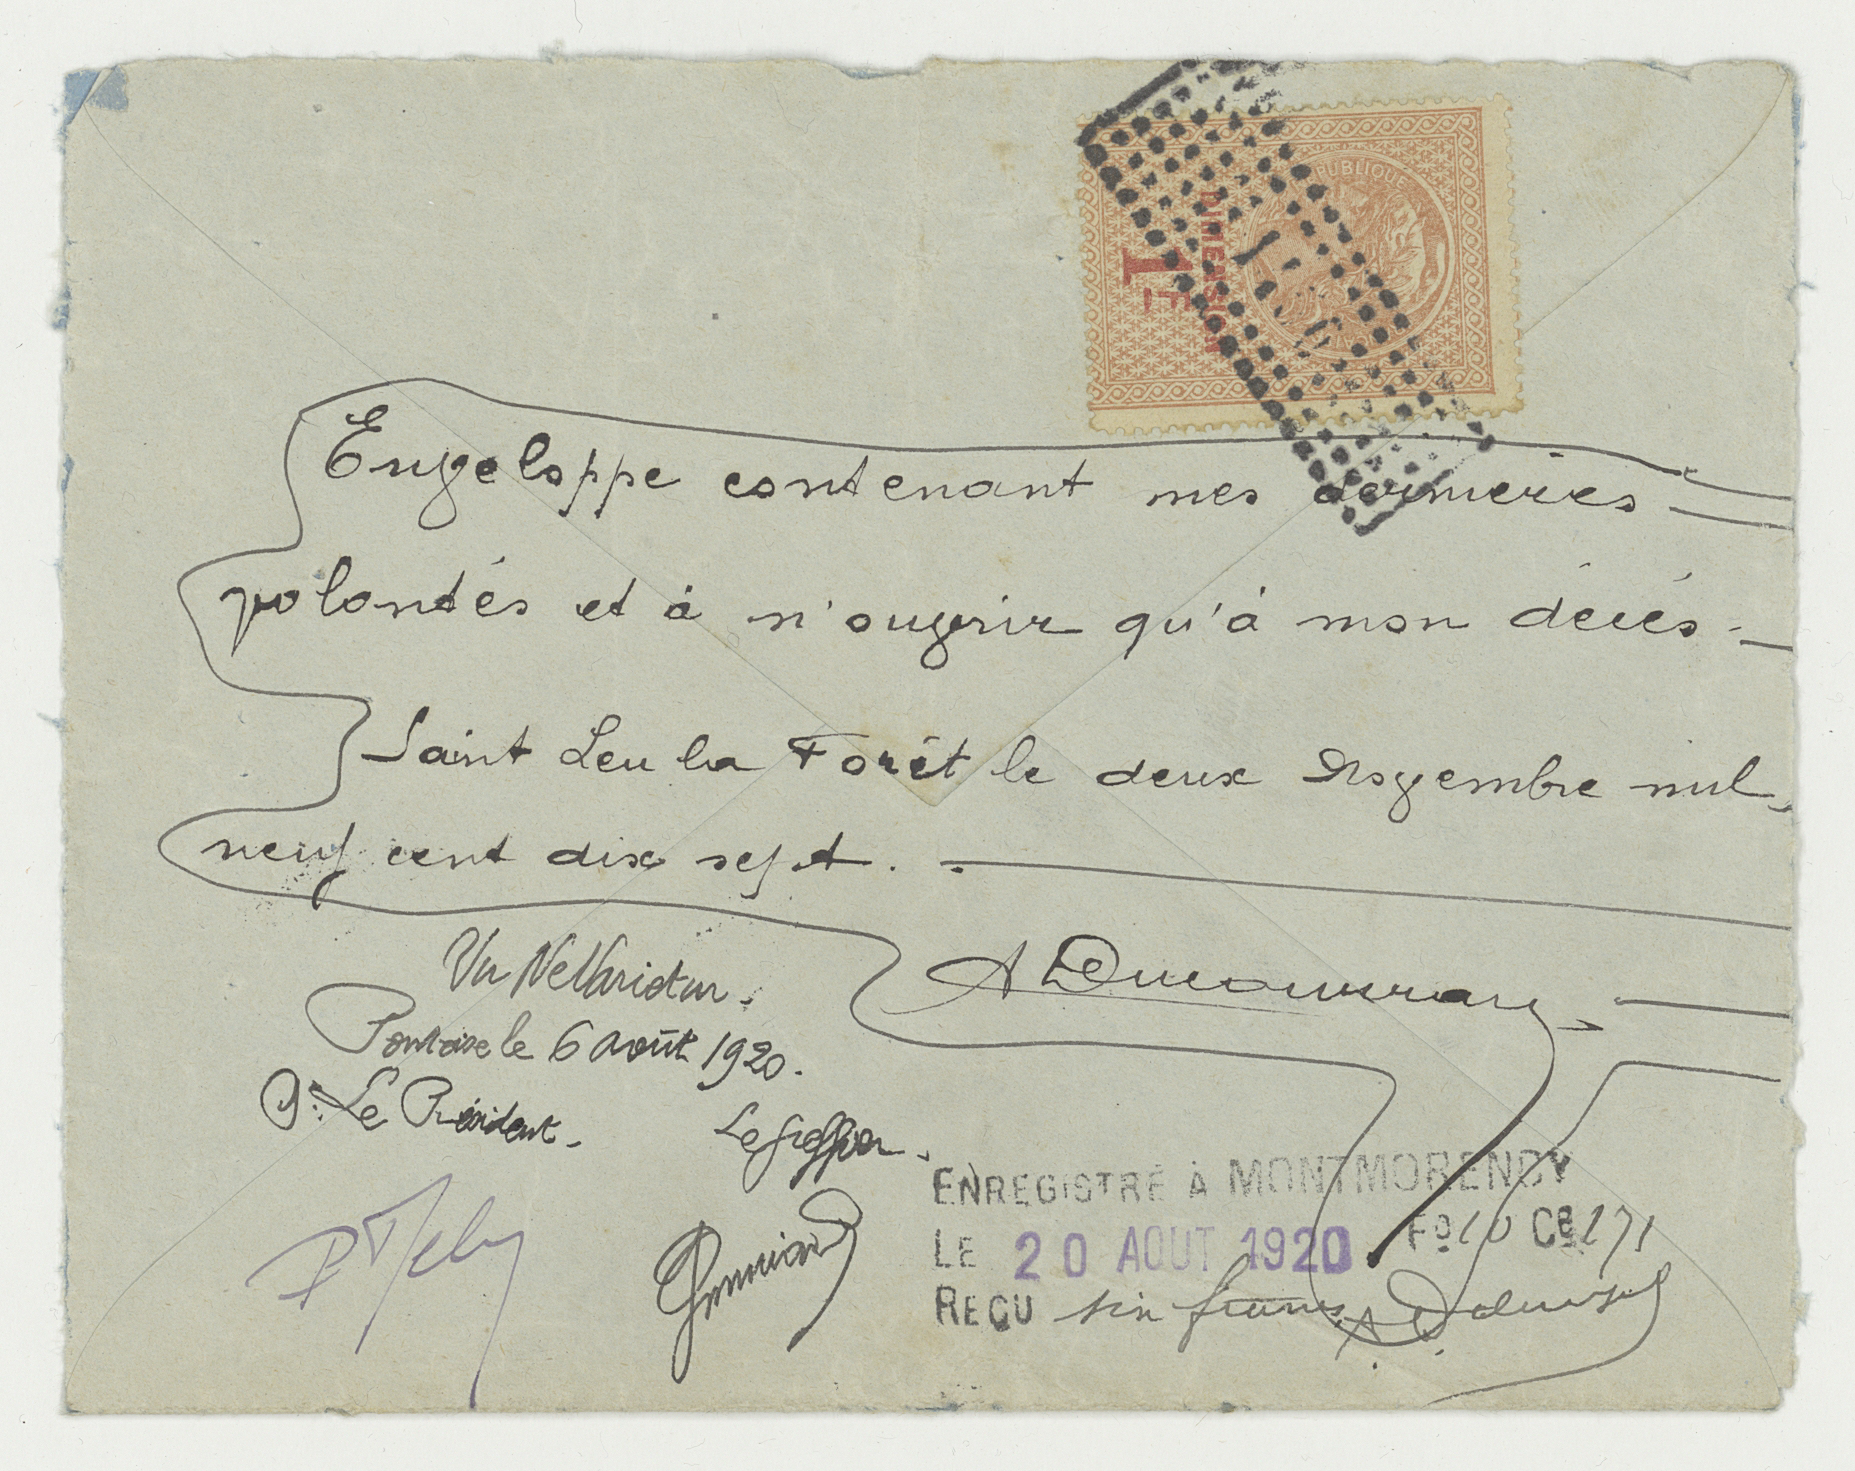 RÉPUBLIQUE
DIMENSION
1F
Enveloppe contenant mes dernières
volontés et à n'ouvrir qu'à mon décés.
Saint Leu la Forêt le deux Novembre mil
neuf cent dix sept.
Vu Ne Varietur.
Pontoise le 6 août 1920.
Le Président.
Le Greffier.
ENREGISTRÉ À MONTMORENCY
LE 20 AOUT 1920 Fº 10 Ce 171
REÇU six francs